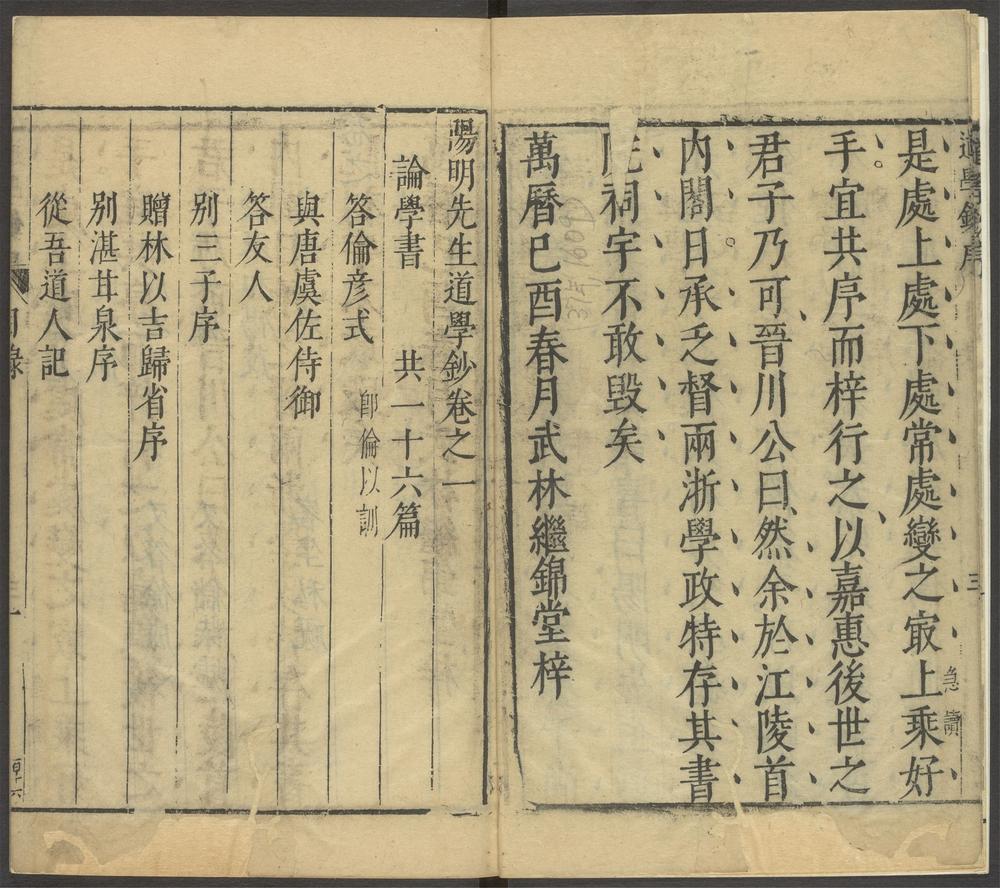 道學鈔序
三
是處上處下處常處變之㝡上乘好
急讀
手宜共序而梓行之以嘉惠後世之
君子乃可晉川公曰然余於江陵首
內閣日承乏督兩浙學政特存其書
院祠宇不敢毀矣
萬曆己酉春月武林繼錦堂梓
陽明先生道學鈔卷之一
論學書 共一十六篇
答倫彥式 卽倫以訓
與唐虞佐侍御
答友人
別三子序
贈林以吉歸省序
別湛甘泉序
從吾道人記
目錄
一